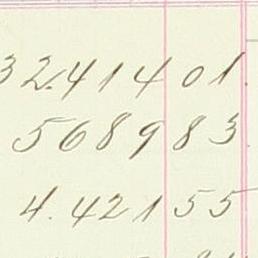 32.414 01
5689 83
4.421 55